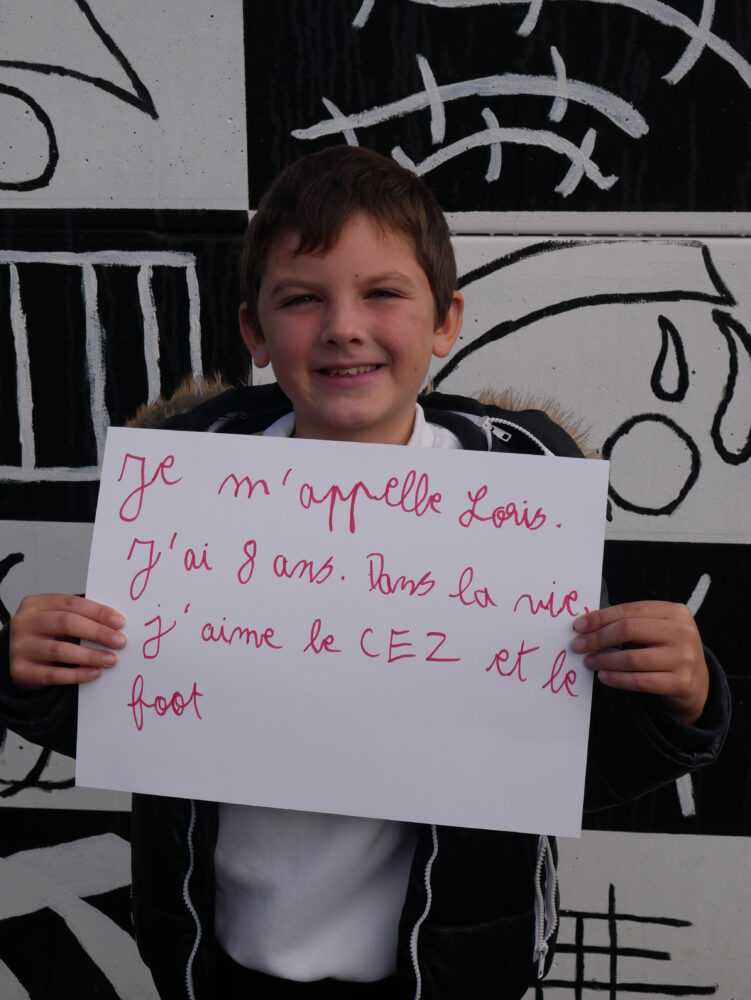 Je m'appelle Loris.
J'ai 8 ans. Dans la vie,
j'aime le CEZ et le
foot